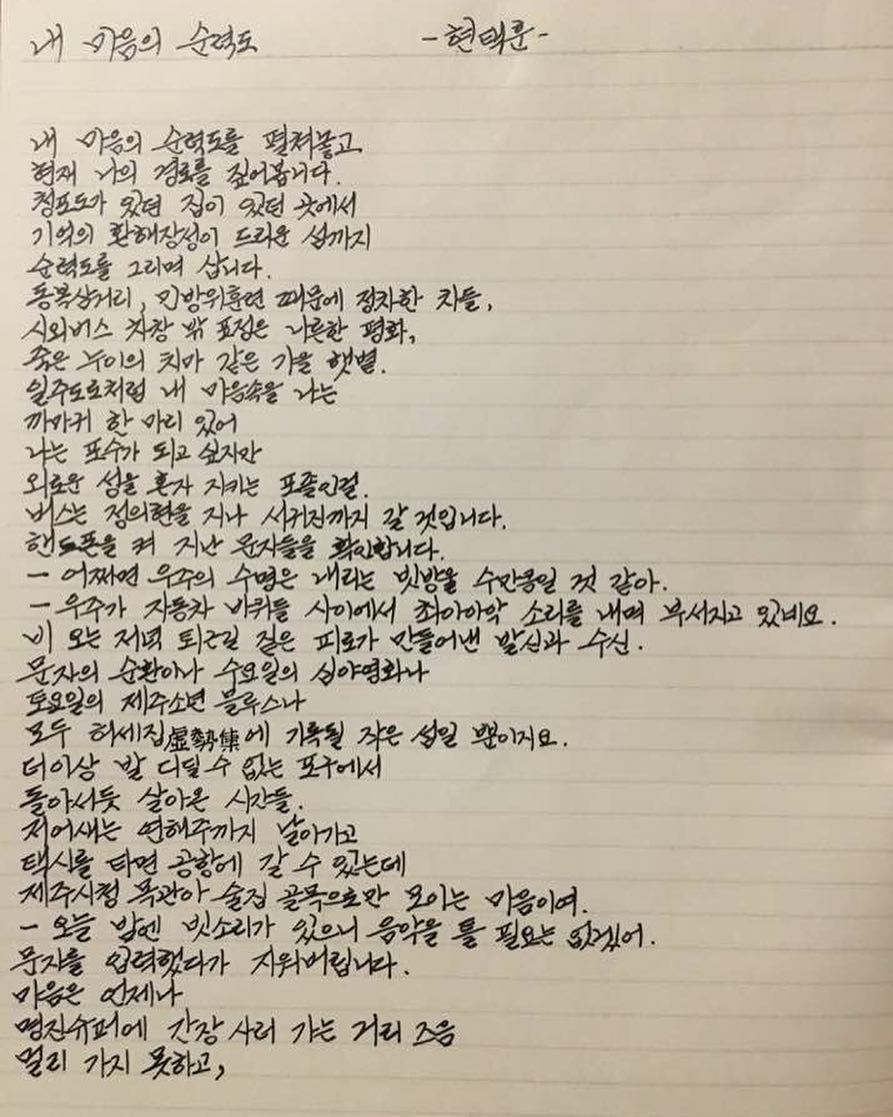 내 마음의 순력도 -현택훈-
내 마음의 순력도를 펼쳐놓고
현재 나의 경로를 짚어봅니다.
청포도가 있던 집이 있던 곳에서
기억의 환해장성이 드리운 섬까지
순력도를 그리며 삽니다.
동복삼거리, 민방위훈련 때문에 정차한 차들,
시외버스 차창 밖 표정은 나른한 평화,
죽은 누이의 치마 같은 가을 햇볕.
일주도로처럼 내 마음속을 나는
까마귀 한 마리 있어
나는 포수가 되고 싶지만
외로운 섬을 혼자 지키는 포졸인걸.
버스는 정의현을 지나 서귀진까지 갈 것입니다.
핸드폰을 켜 지난 문자들을 확인합니다.
- 어쩌면 우주의 수명은 내리는 빗방울 수만큼일 것 같아.
- 우주가 자동차 바퀴들 사이에서 촤아아악 소리를 내며 부서지고 있네요.
비 오는 저녁 퇴근길 젊은 피로가 만들어낸 발신과 수신.
문자의 순환이나 수요일의 심야영화나
토요일의 제주소년 블루스나
모두 허세집虛勢集에 기록될 작은 섬일 뿐이지요.
더이상 발 디딜 수 없는 포구에서
돌아서듯 살아온 시간들.
저어새는 연해주까지 날아가고
택시를 타면 공항에 갈 수 있는데
제주시청 목관아 술집 골목으로만 모이는 마음이여.
- 오늘 밤엔 빗소리가 있으니 음악을 틀 필요는 없겠어.
문자를 입력했다가 지워버립니다.
마음은 언제나
명진슈퍼에 간장 사러 가는 거리 즈음
멀리 가지 못하고,